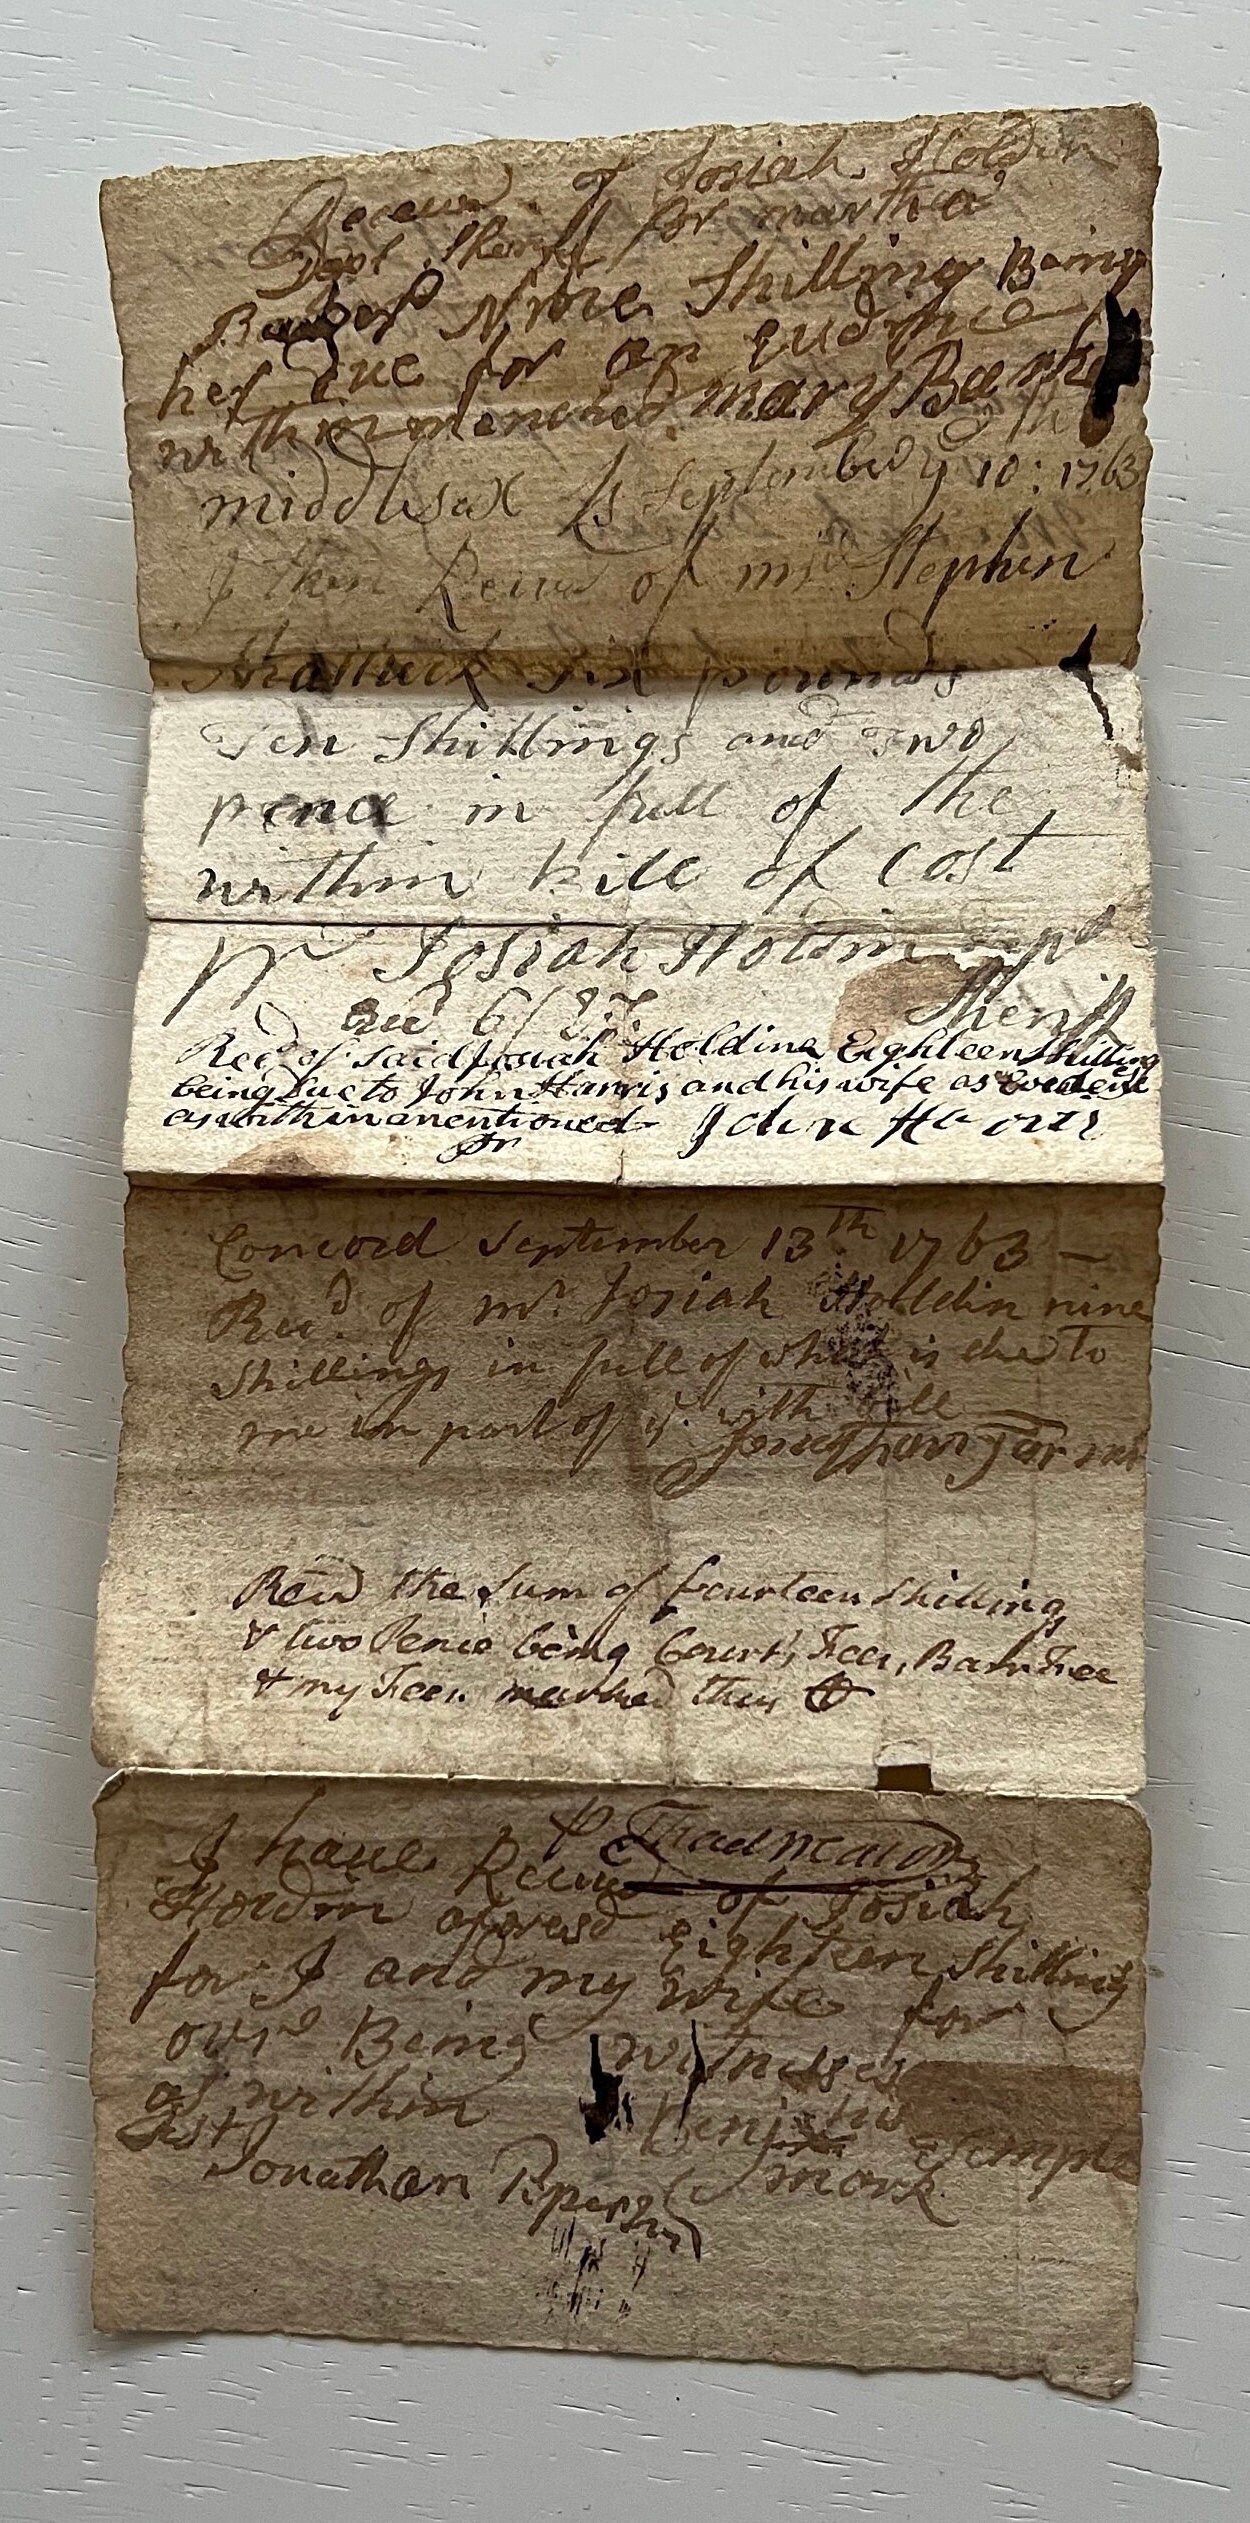 Received of Josiah Holdin
Dept Sheriff for martha
Barker Nine Shilling Being
her due for an evedence
within mencned mary Barker
middlesex Ss September ye 10th: 1763
I then Receivd of mr Stephen
Shattuck Six pounds
Ten Shillings and Two
pence in full of the
within bill of Cost
pr Josiah Holdin Dept
Sheriff
Recd of said Josiah Holding Eighteen shilling
being Due to John Harris and his wife as Evedence
as within mentioned pr John Harris
Concord September 13th 1763 —
Recd. of mr. Josiah Holdin nine
Shillings in full of what is due to
me in part of ye. with bill
Jonathan
Recd the Sum of fourteen shillings
& two Pence being Court's Fees, Barr Fee
& my Fees marked thus
pr Thad Mason
I have Receivd of Josiah
Holdin aforesd eighteen Shilling
for I and my wife for
our Being witnesses
as within Benj his Temple
mark
Test Jonathan Piper